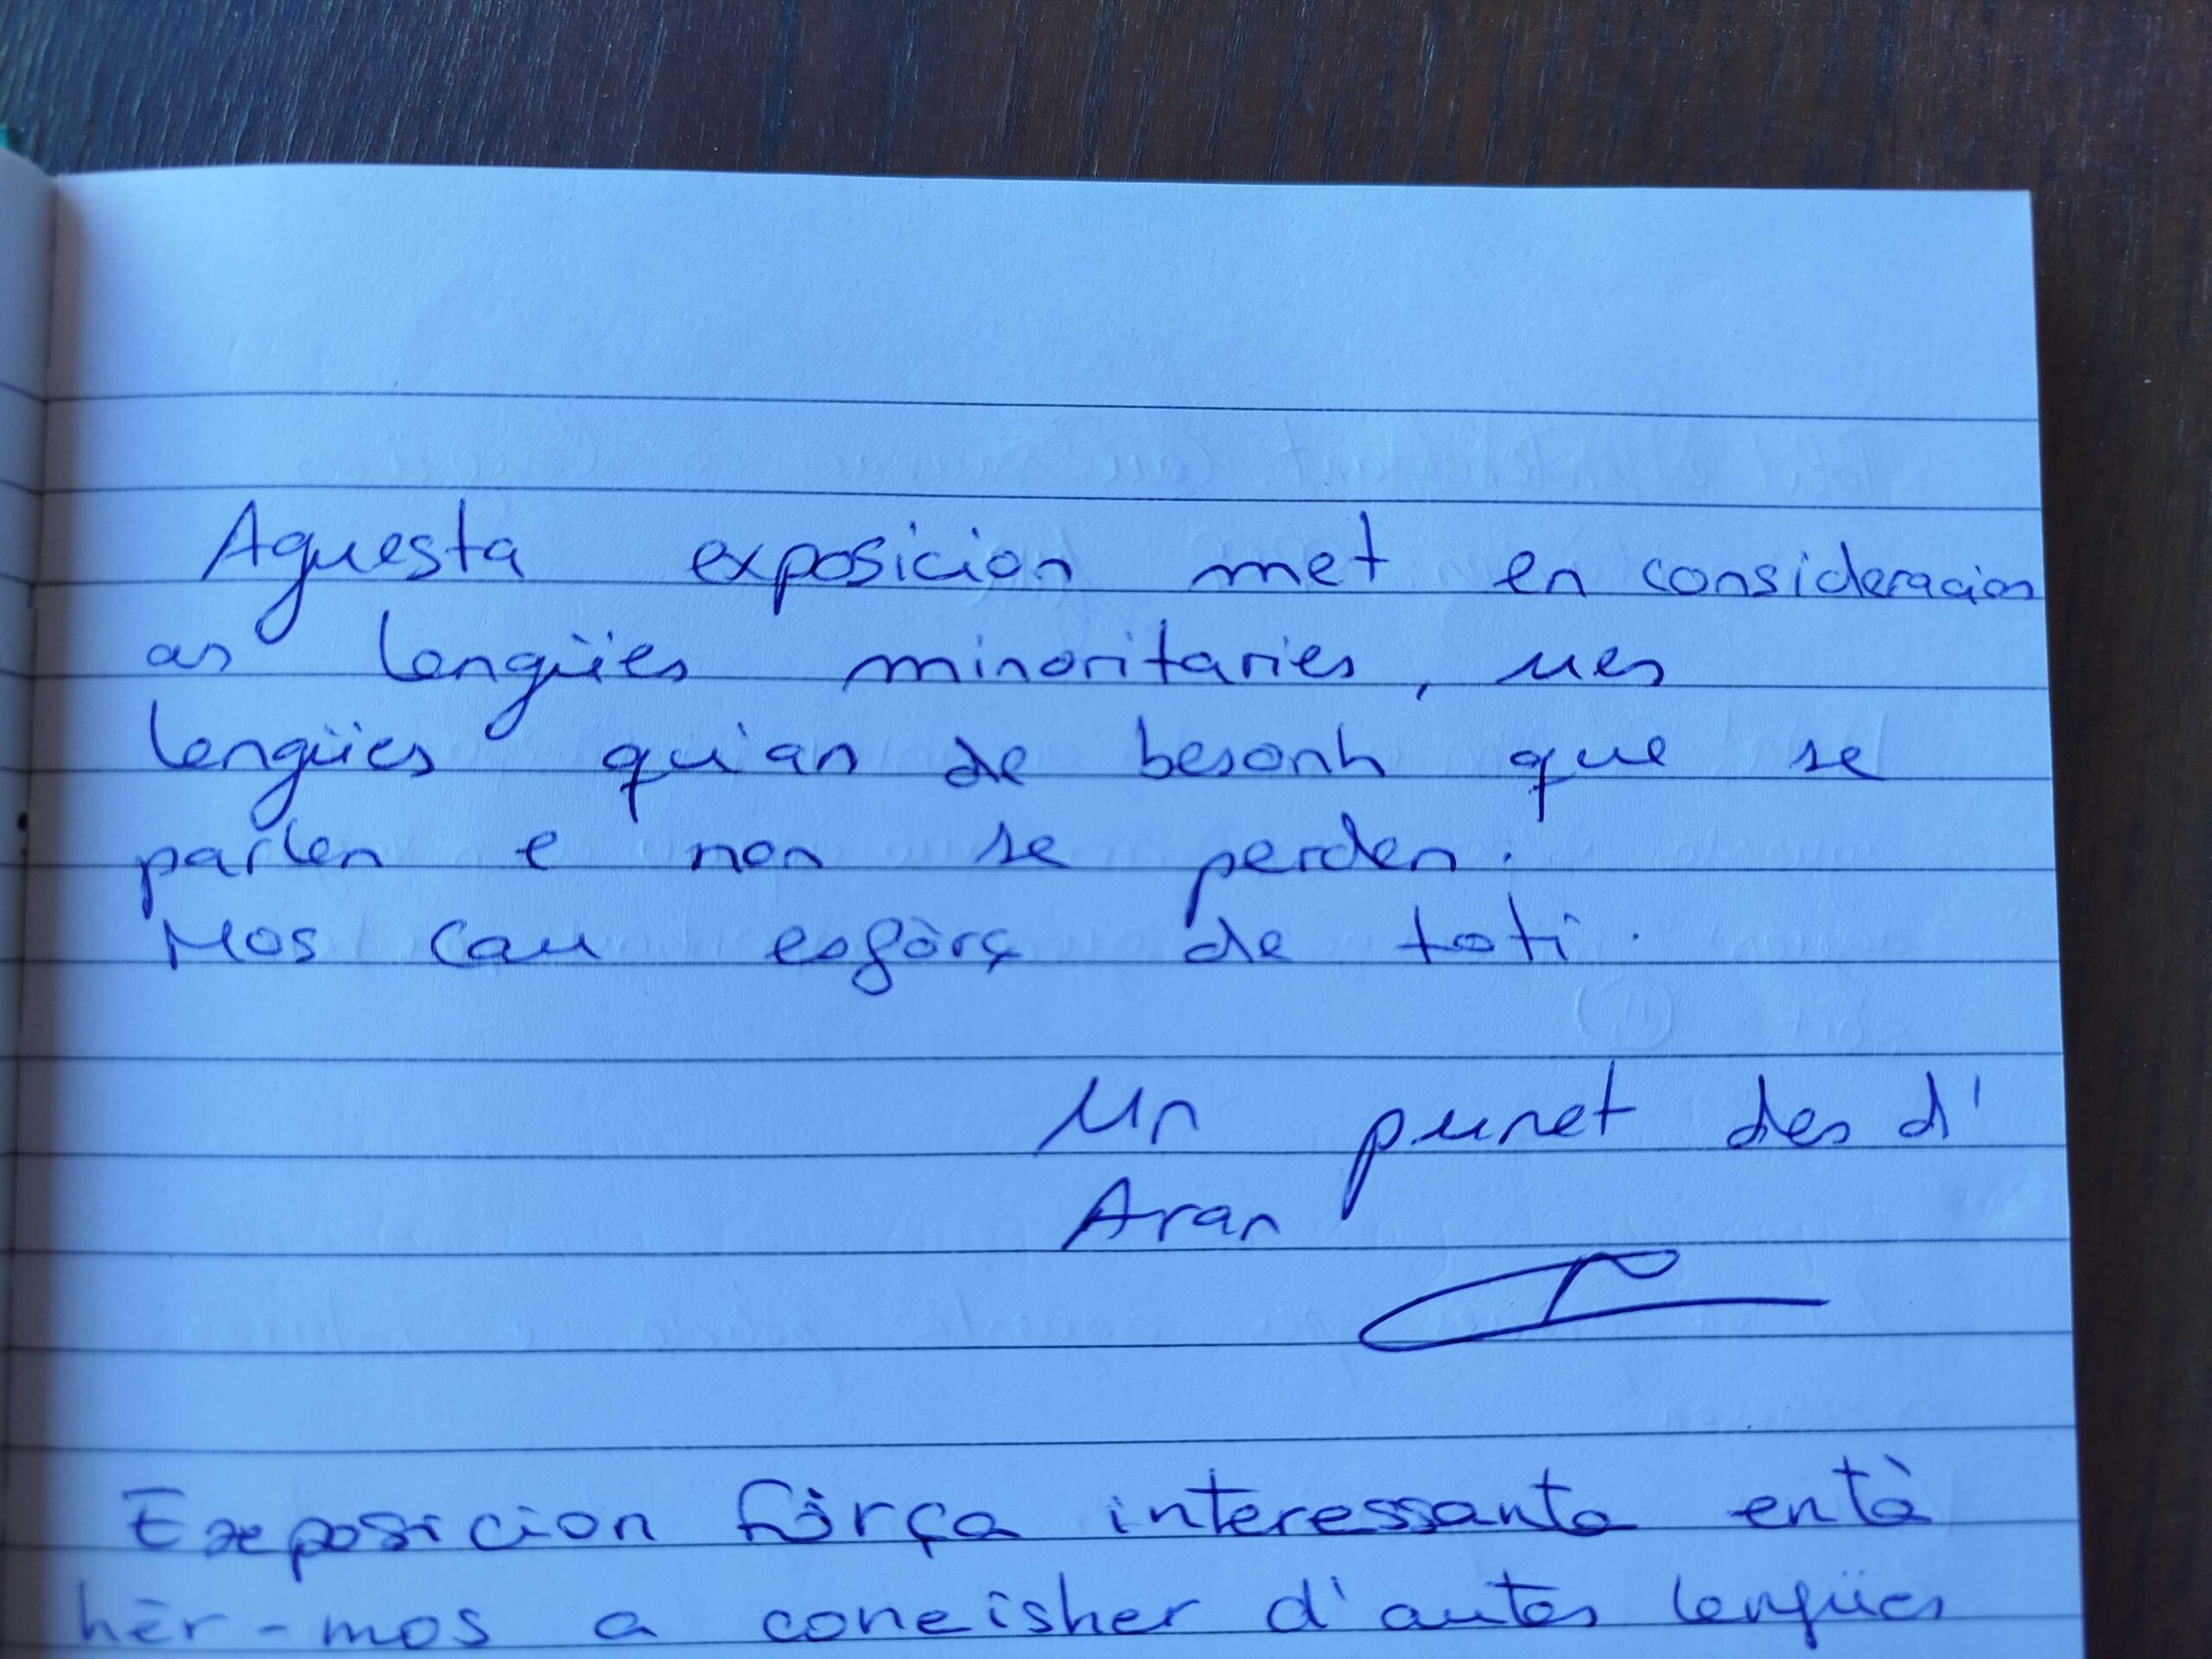 Aguesta exposicion met en consideracion
as lengües minoritaries, ues
lengües qu'an de besonh que se
parlen e non se perden.
Mos cau esfòrç de toti.
Un punet des d'
Aran
Exposicion fòrça interessanta entà
hèr-mos a coneisher d'autes lengües